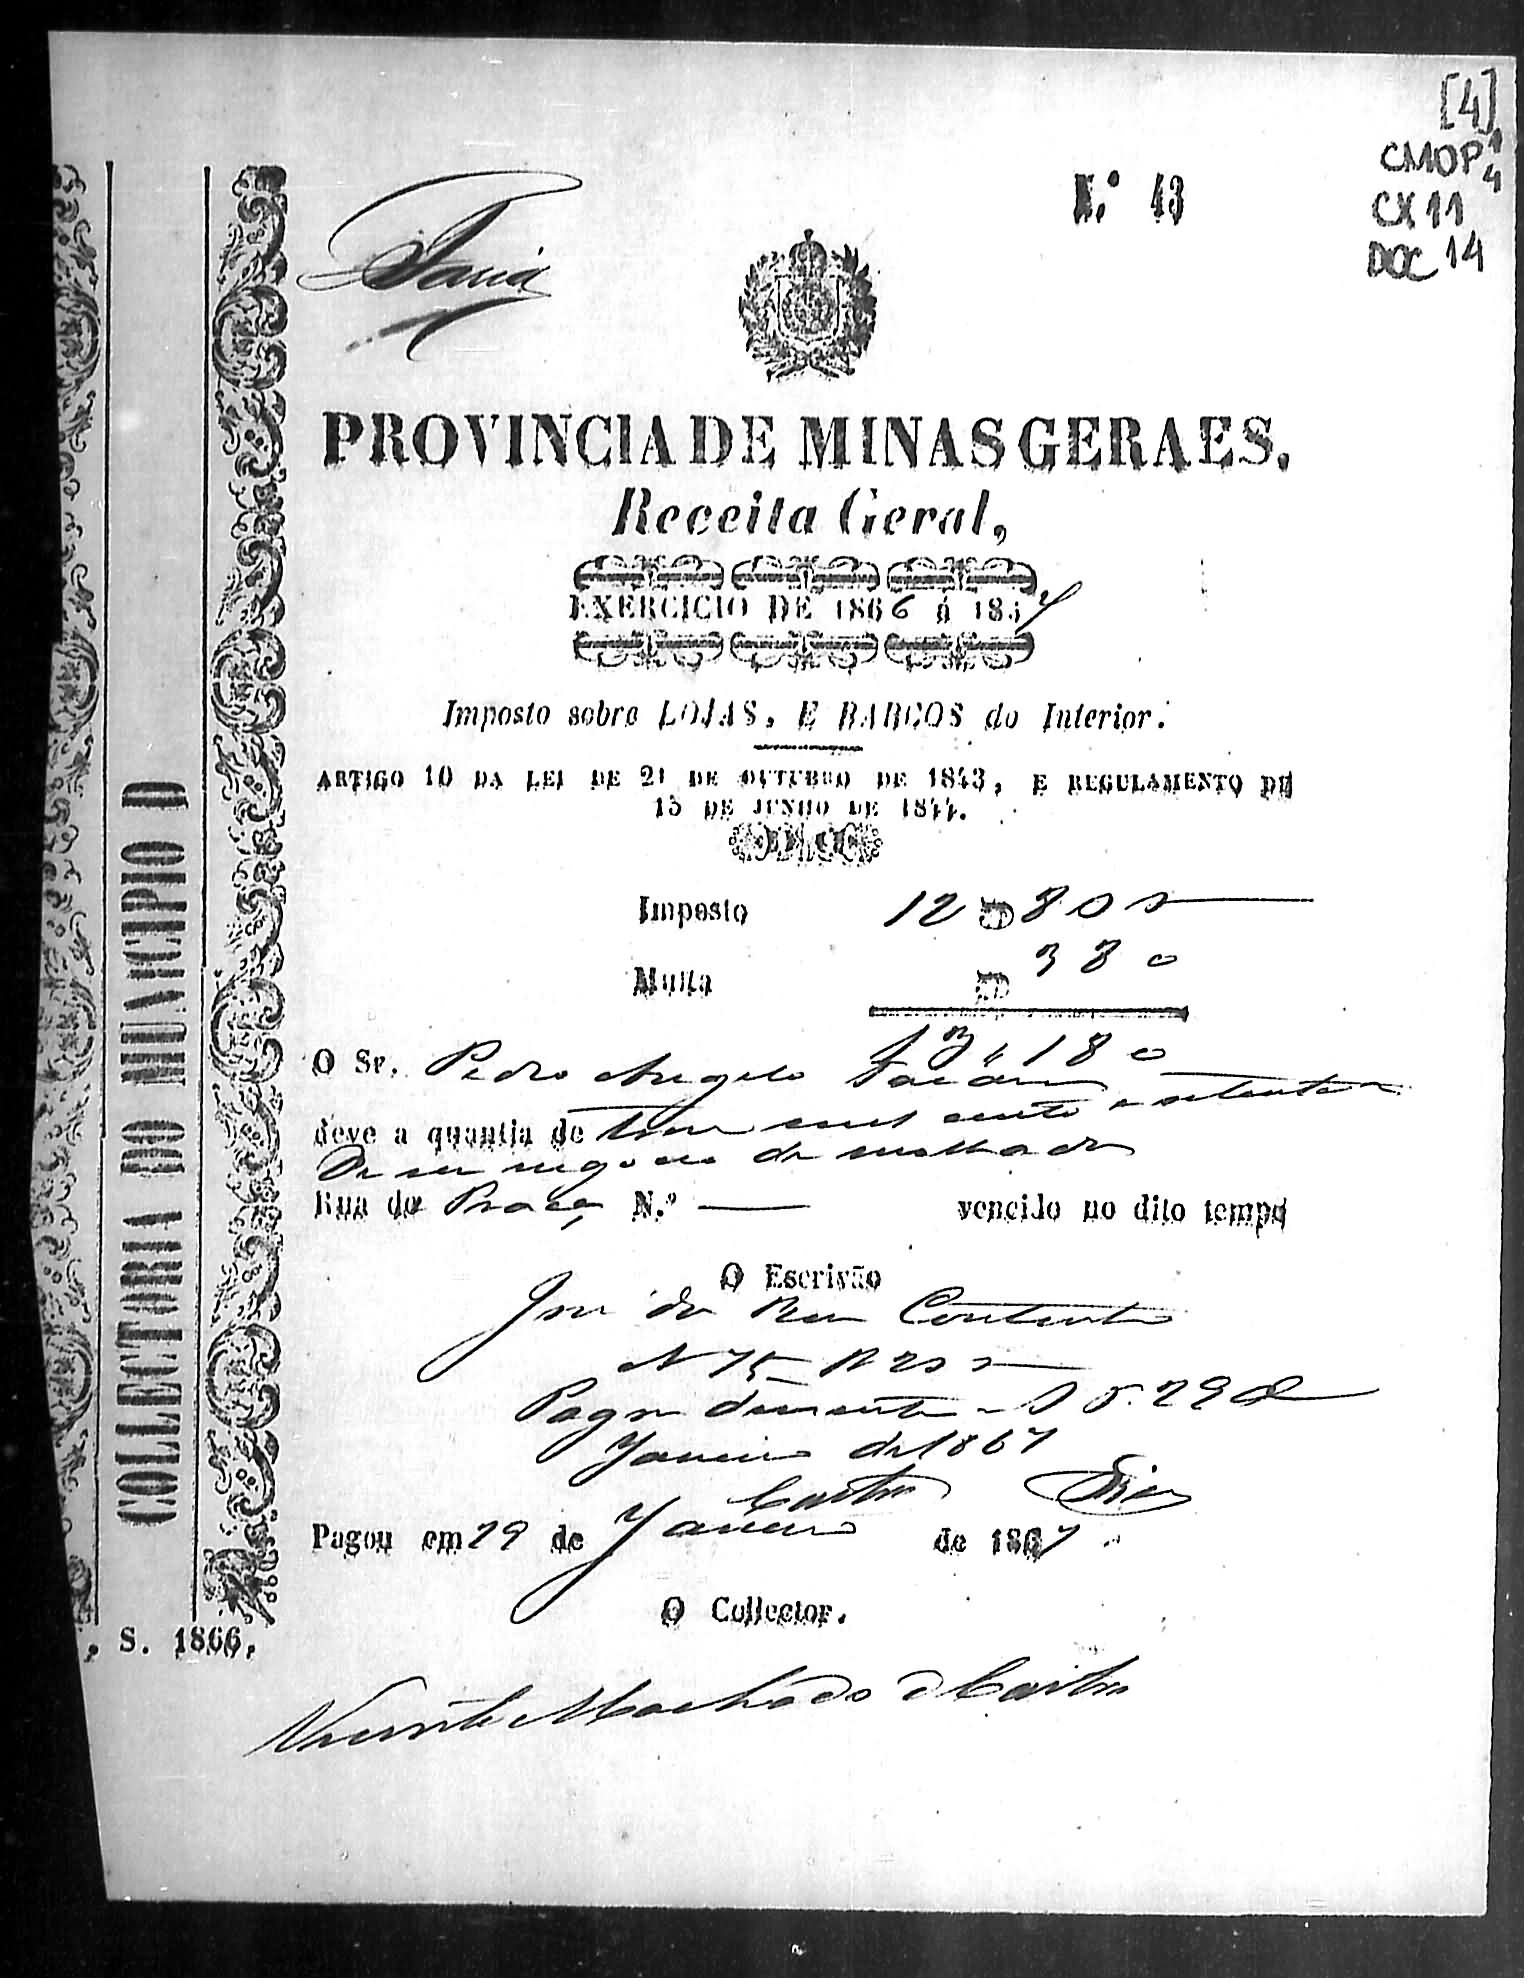 [4]
CMOP 1/4
CX 11
DOC 14
N.º 43
Faria
PROVINCIA DE MINAS GERAES.
Receita Geral,
EXERCICIO DE 1866 á 1867
Imposto sobre LOJAS, E BARCOS do Interior.
ARTIGO 10 DA LEI DE 21 DE OUTUBRO DE 1843, E REGULAMENTO DE
15 DE JUNHO DE 1844.
Imposto 12$800
Multa $380
13,180
O Sr. Pedro Angelo
deve a quantia de tres mil cento e oitenta
De seu negocio de molhados
Rua da Praça N.º — vencido no dito tempo
O Escrivão
José da
N 75 R 200
Pagou 29 de
Janeiro de 1867
Castro Dias
Pagou em 29 de Janeiro de 1867
O Collector.
Vicente Machado de Castro
COLLECTORIA DO MUNICIPIO D
, S. 1866.